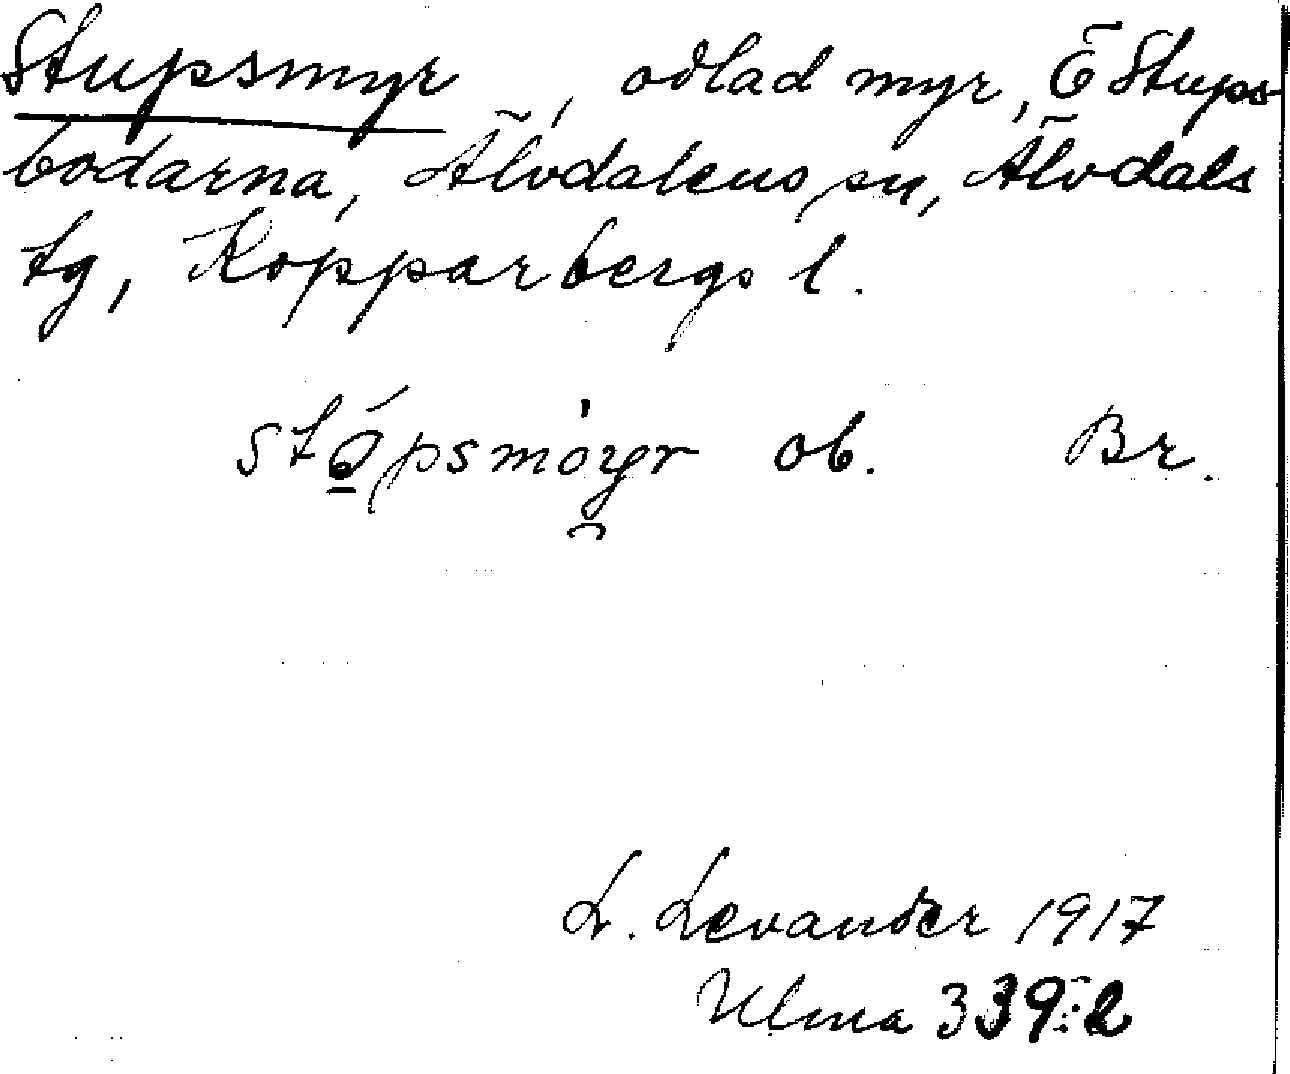 Stupsmyr, odlad myr, Ö Stups-
bodarna, Älvdalens sn, Älvdals
tg, Kopparbergs l.
ob. Br.
L. Levander 1917
Ulma 339:2